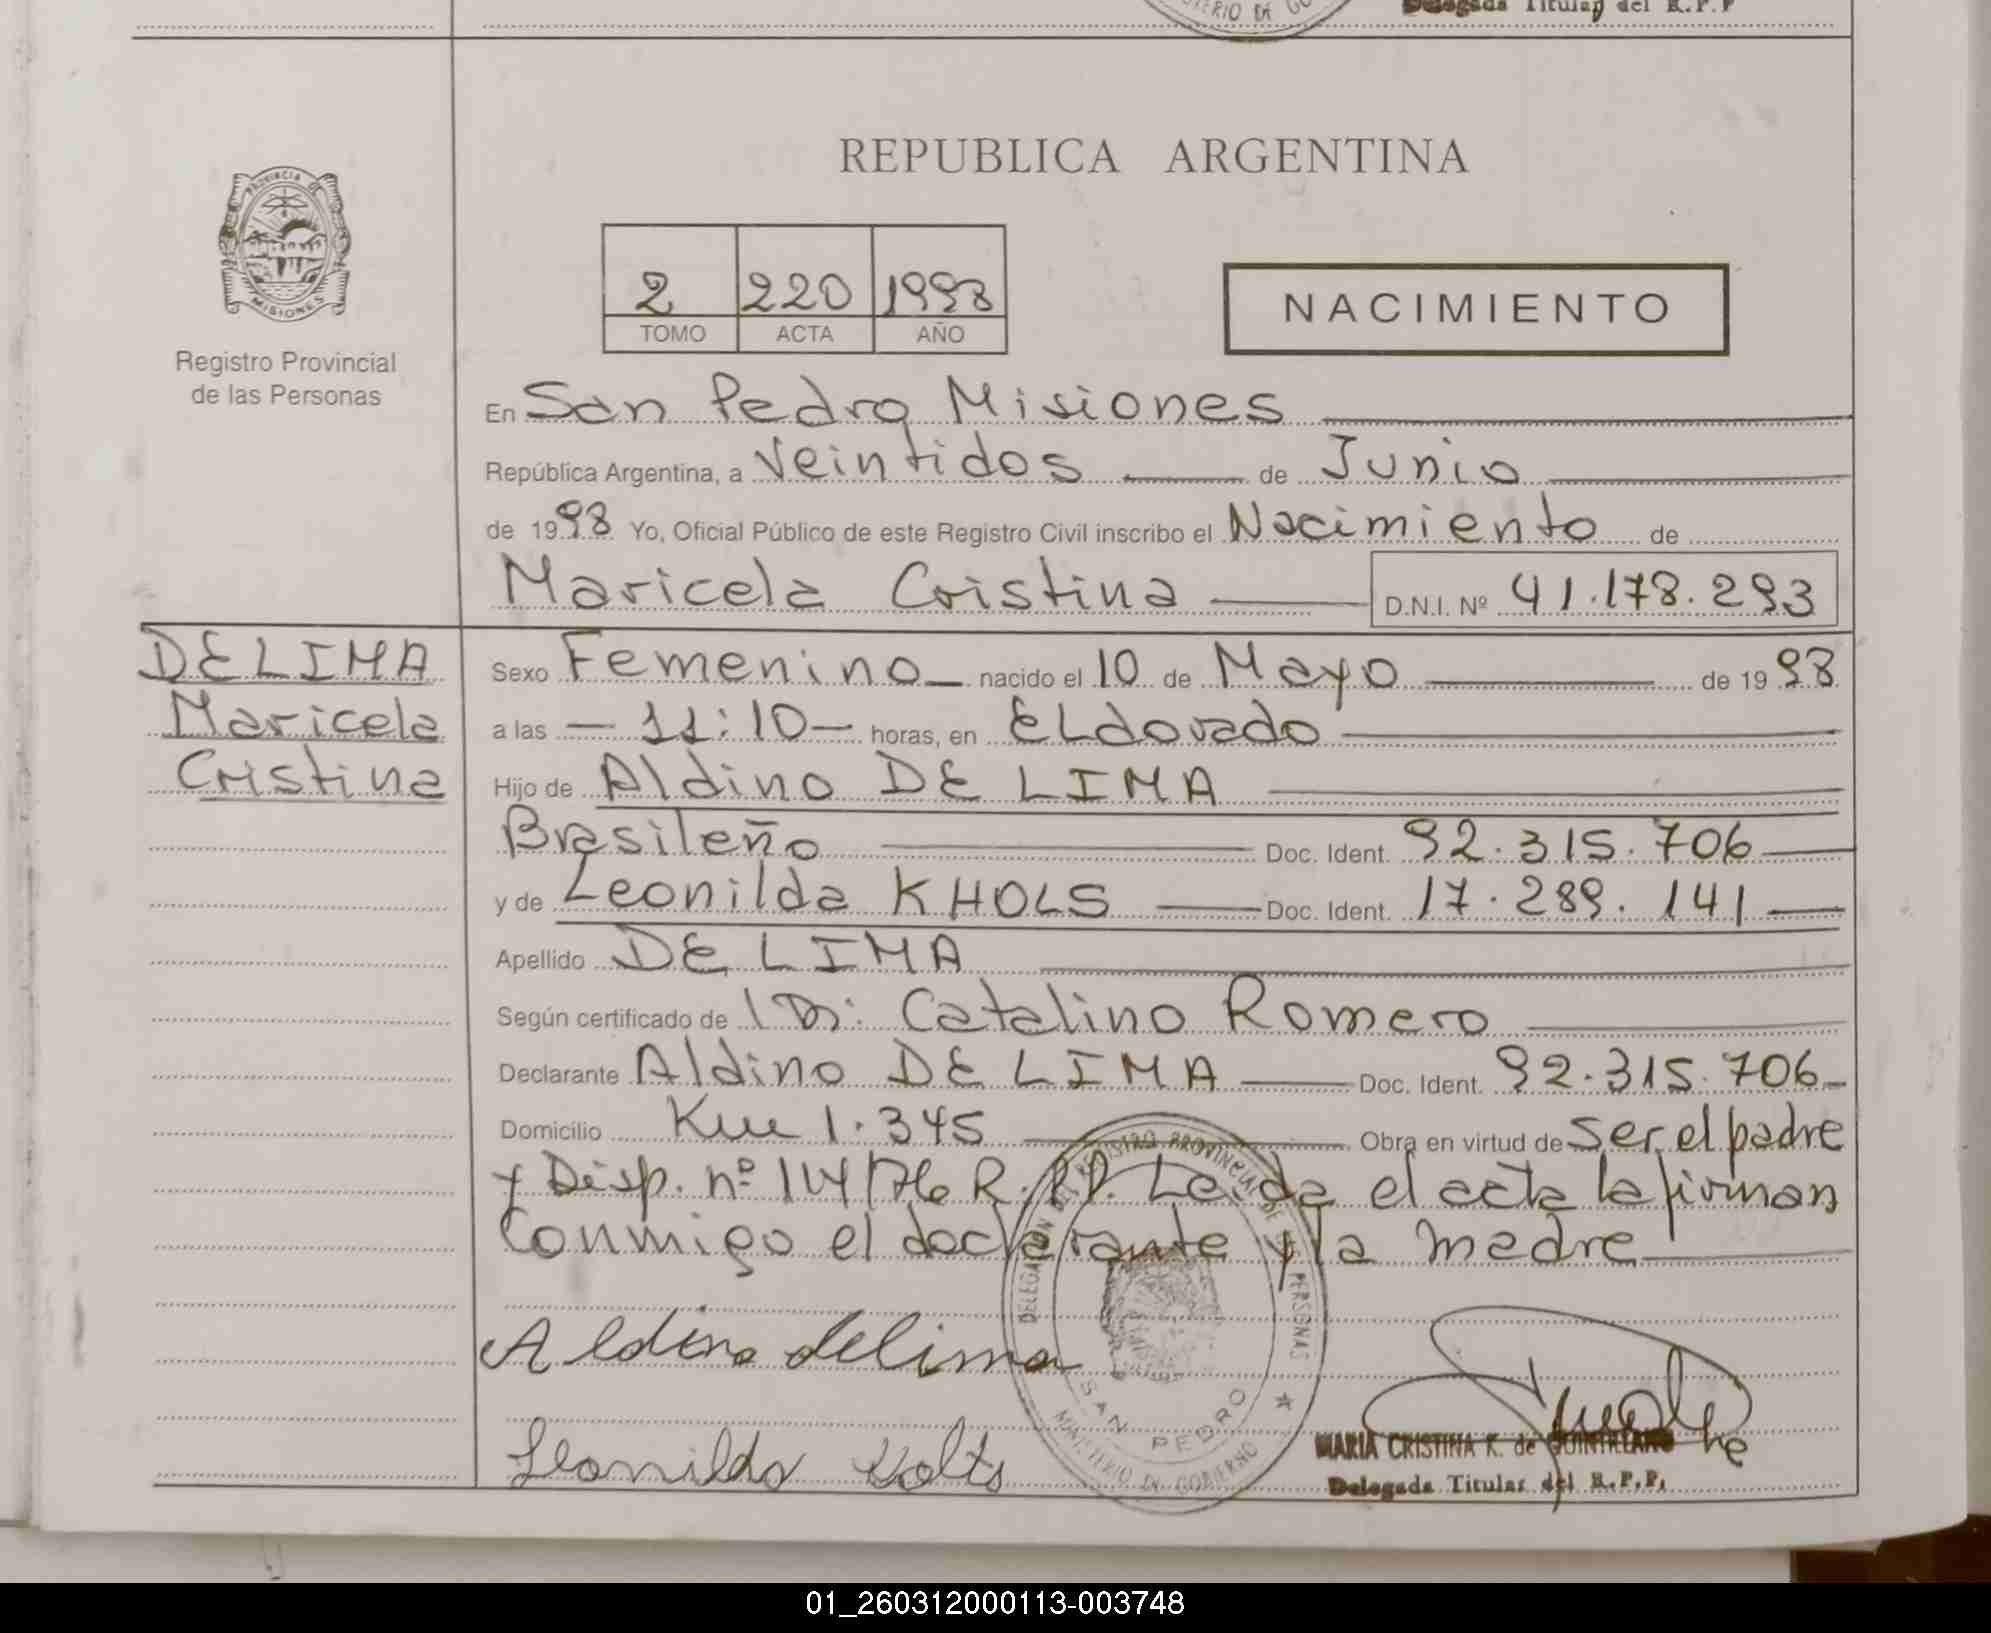 Delegada Titular del R.P.P
REPUBLICA ARGENTINA
PROVINCIA DE MISIONES
Registro Provincial
de las Personas
2 220 1998
TOMO ACTA AÑO
NACIMIENTO
En San Pedro Misiones
República Argentina, a Veintidos de Junio
de 1998 Yo, Oficial Público de este Registro Civil inscribo el Nacimiento de
Maricela Cristina D.N.I. Nº 41.178.293
DE LIMA
Maricela
Cristina
Sexo Femenino nacido el 10 de Mayo de 1998
a las 11:10 horas, en ELdorado
Hijo de Aldino DE LIMA
Brasileño Doc. Ident. 92.315.706
y de Leonilda KHOLS Doc. Ident. 17.289.141
Apellido DE LIMA
Según certificado de Catalino Romero
Declarante Aldino DE LIMA Doc. Ident. 92.315.706
Domicilio Km 1.345 Obra en virtud de ser el padre
y Disp. nº 114/76 R.P.P. Leida el acta la firman
conmigo el declarante y la madre
Aldino delima
Leonilda Kolts
DELEGACION DEL REGISTRO PROVINCIAL DE PERSONAS
SAN PEDRO
MINISTERIO DE GOBIERNO
MARIA CRISTINA K. de QUINTALANO
Delegada Titular del R.P.P.
01_260312000113-003748